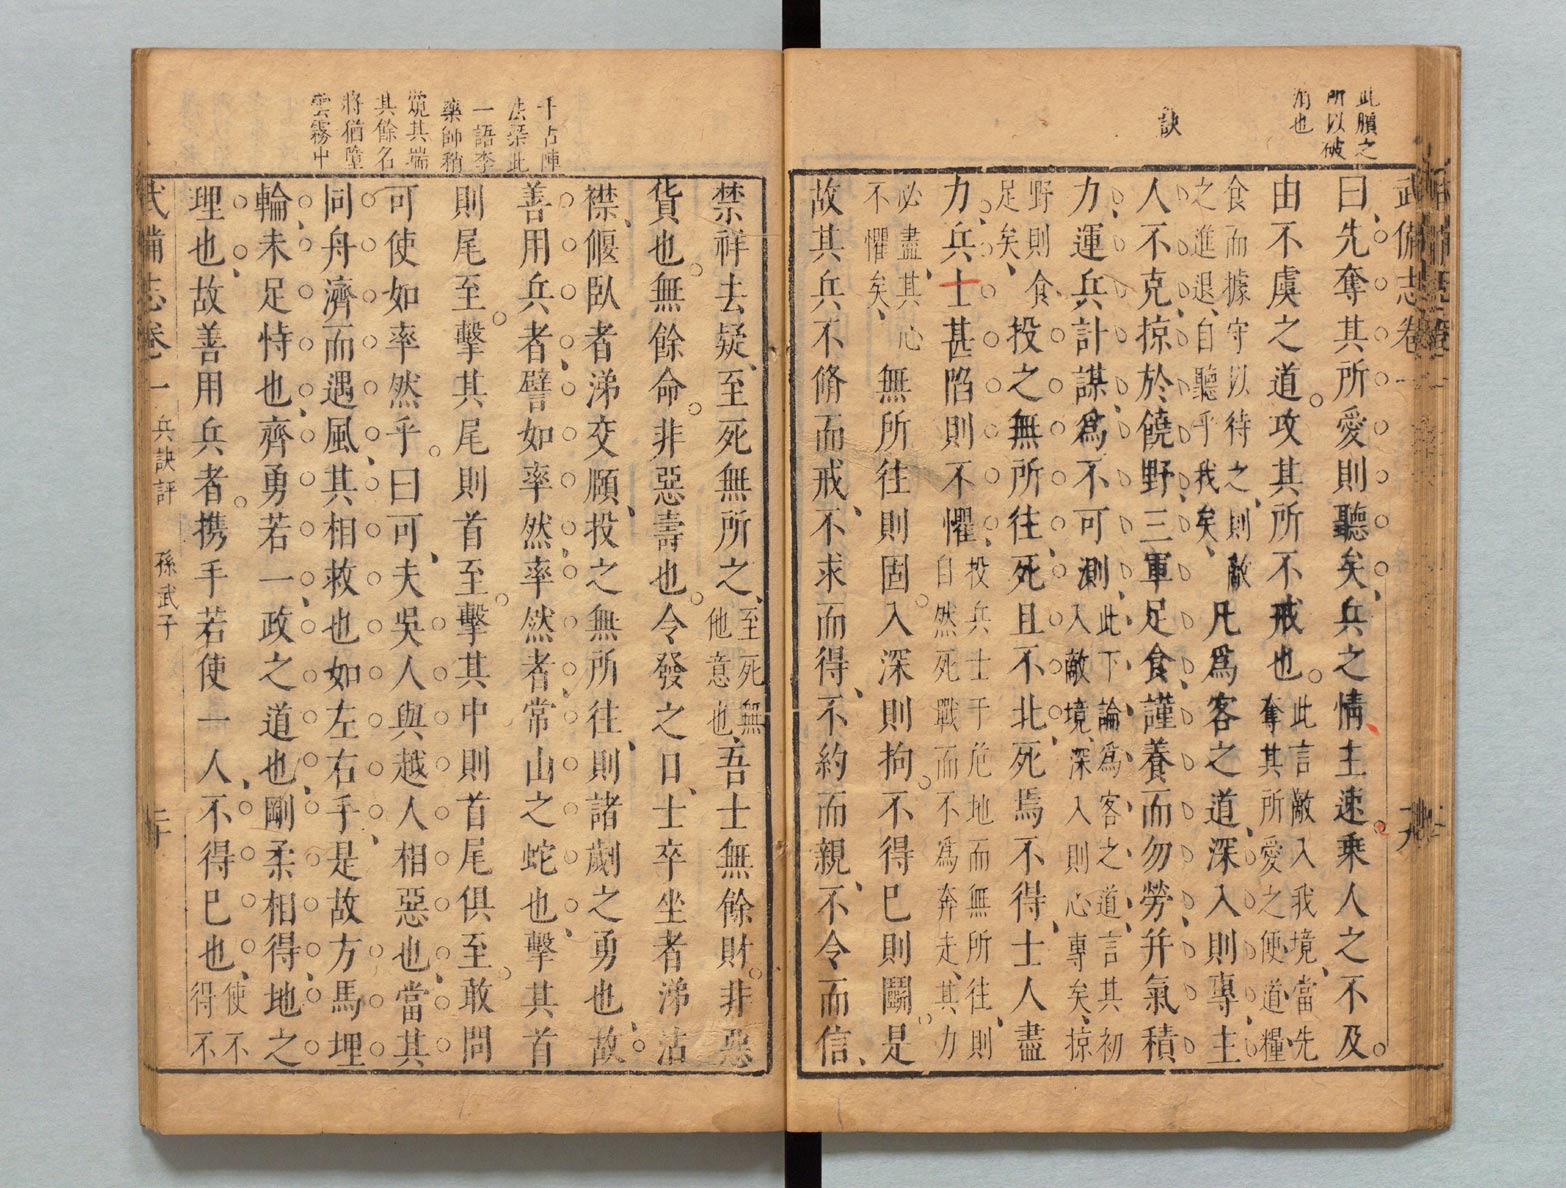 武備志卷一
十九
此臏之
所以破
涓也
訣
曰先奪其所愛則聽矣兵之情主速乘人之不及
由不虞之道攻其所不戒也此言敵入我境當先奪其所愛之便道糧
食而據守以待之則敵之進退自聽乎我矣凡爲客之道深入則專主
人不克掠於饒野三軍足食謹養而勿勞并氣積
力運兵計謀爲不可測此下論爲客之道言其初入敵境深入則心專矣掠
野則食足矣投之無所往死且不北死焉不得士人盡
力兵士甚陷則不懼投兵士于危地而無所往則自然死戰而不爲奔走其力
必盡其心不懼矣無所往則固入深則拘不得已則鬭是
故其兵不脩而戒不求而得不約而親不令而信
千古陣
法槩此
一語李
藥師稍
窺其端
其餘名
將猶墮
雲霧中
禁祥去疑至死無所之至死無他意也吾士無餘財非惡
貨也無餘命非惡壽也令發之日士卒坐者涕沾
襟偃臥者涕交頤投之無所往則諸劌之勇也故
善用兵者譬如率然率然者常山之蛇也擊其首
則尾至擊其尾則首至擊其中則首尾俱至敢問
可使如率然乎曰可夫吳人與越人相惡也當其
同舟濟而遇風其相救也如左右手是故方馬埋
輪未足恃也齊勇若一政之道也剛柔相得地之
理也故善用兵者携手若使一人不得已也使不得不
武備志卷一 兵訣評 孫武子 二十